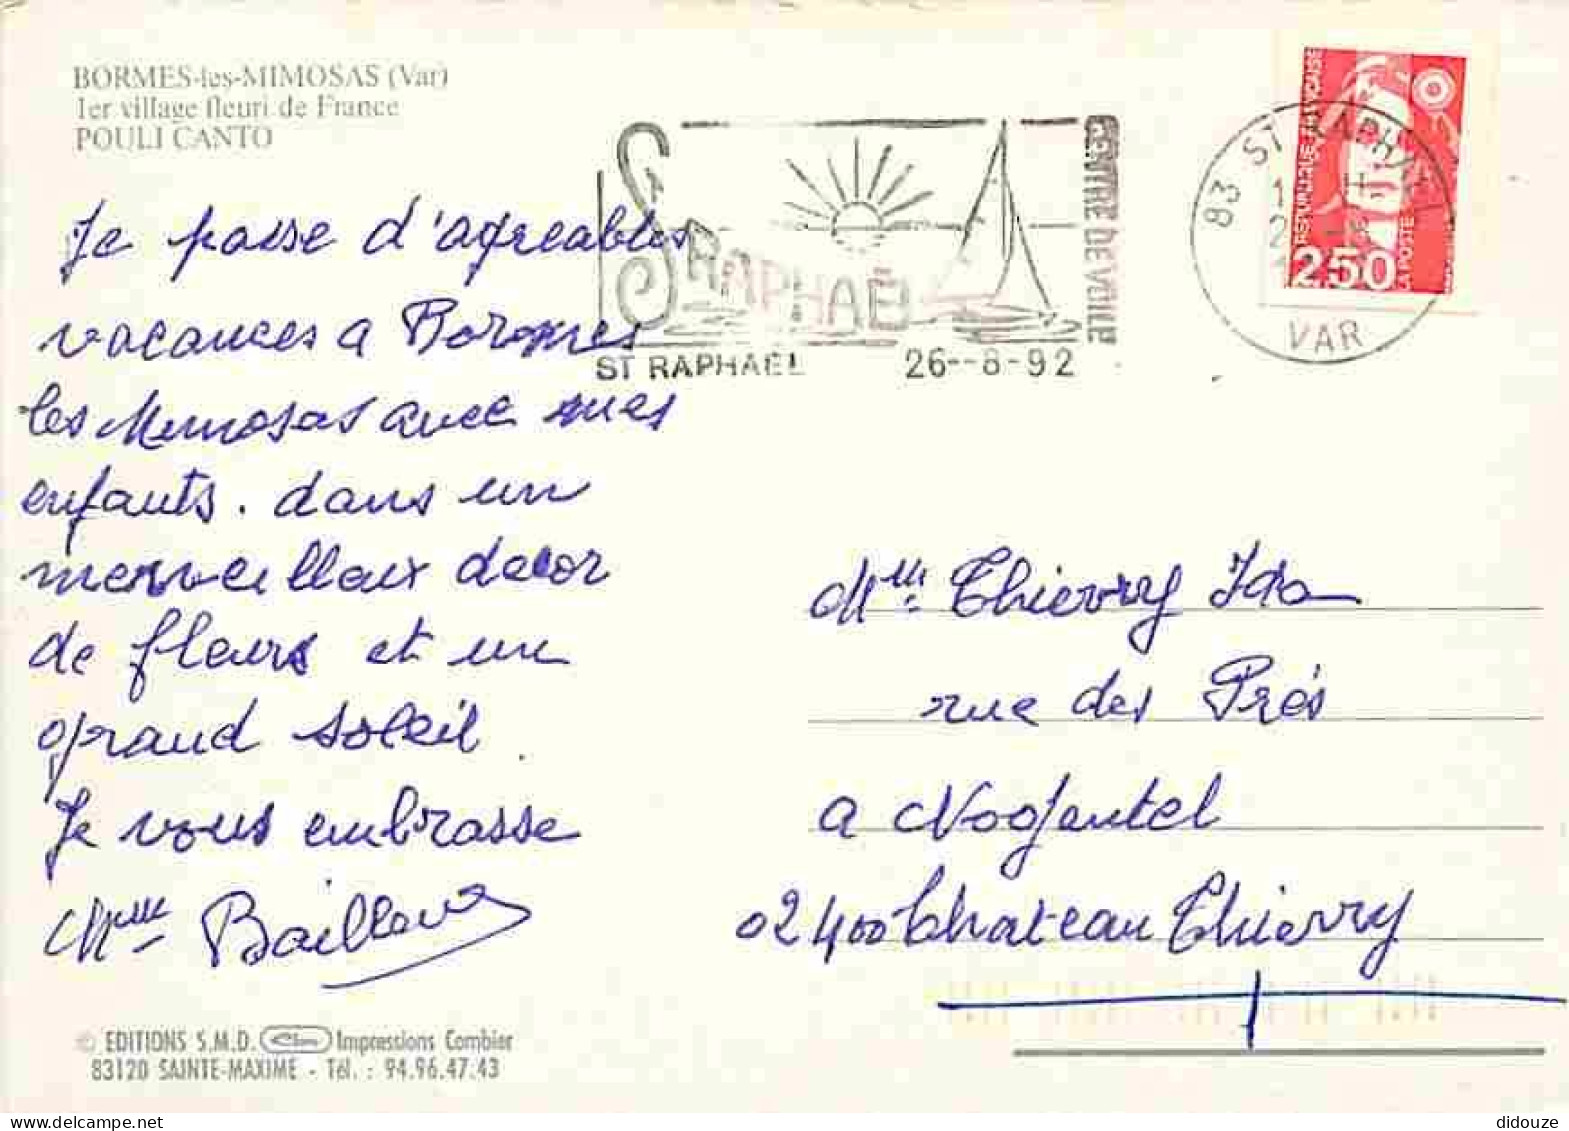 BORMES-les-MIMOSAS (Var)
1er village fleuri de France
POULI CANTO
Je passe d'agreables
vacances a Bormes
les Mimosas avec mes
enfants. dans un
merveilleux decor
de fleurs et un
grand soleil.
Je vous embrasse
Mme Bailleux
© EDITIONS S.M.D. Cim Impressions Combier
83120 SAINTE-MAXIME - Tél. : 94.96.47.43
ST RAPHAËL
CENTRE DE VOILE
ST RAPHAEL 26-8-92
83 ST RAPHAEL
VAR
REPUBLIQUE FRANÇAISE
2,50
LA POSTE
Mme Thierry Ida
rue des Prés
a Nogentel
02400 Chateau Thierry
didouze